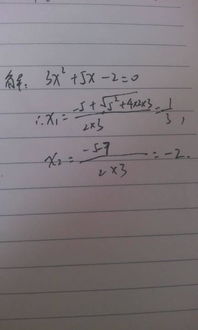 解: 3x²+5x-2=0
∴x₁=(-5+√(5²+4×2×3))/(2×3)=1/3,
x₂=(-5-7)/(2×3)=-2.